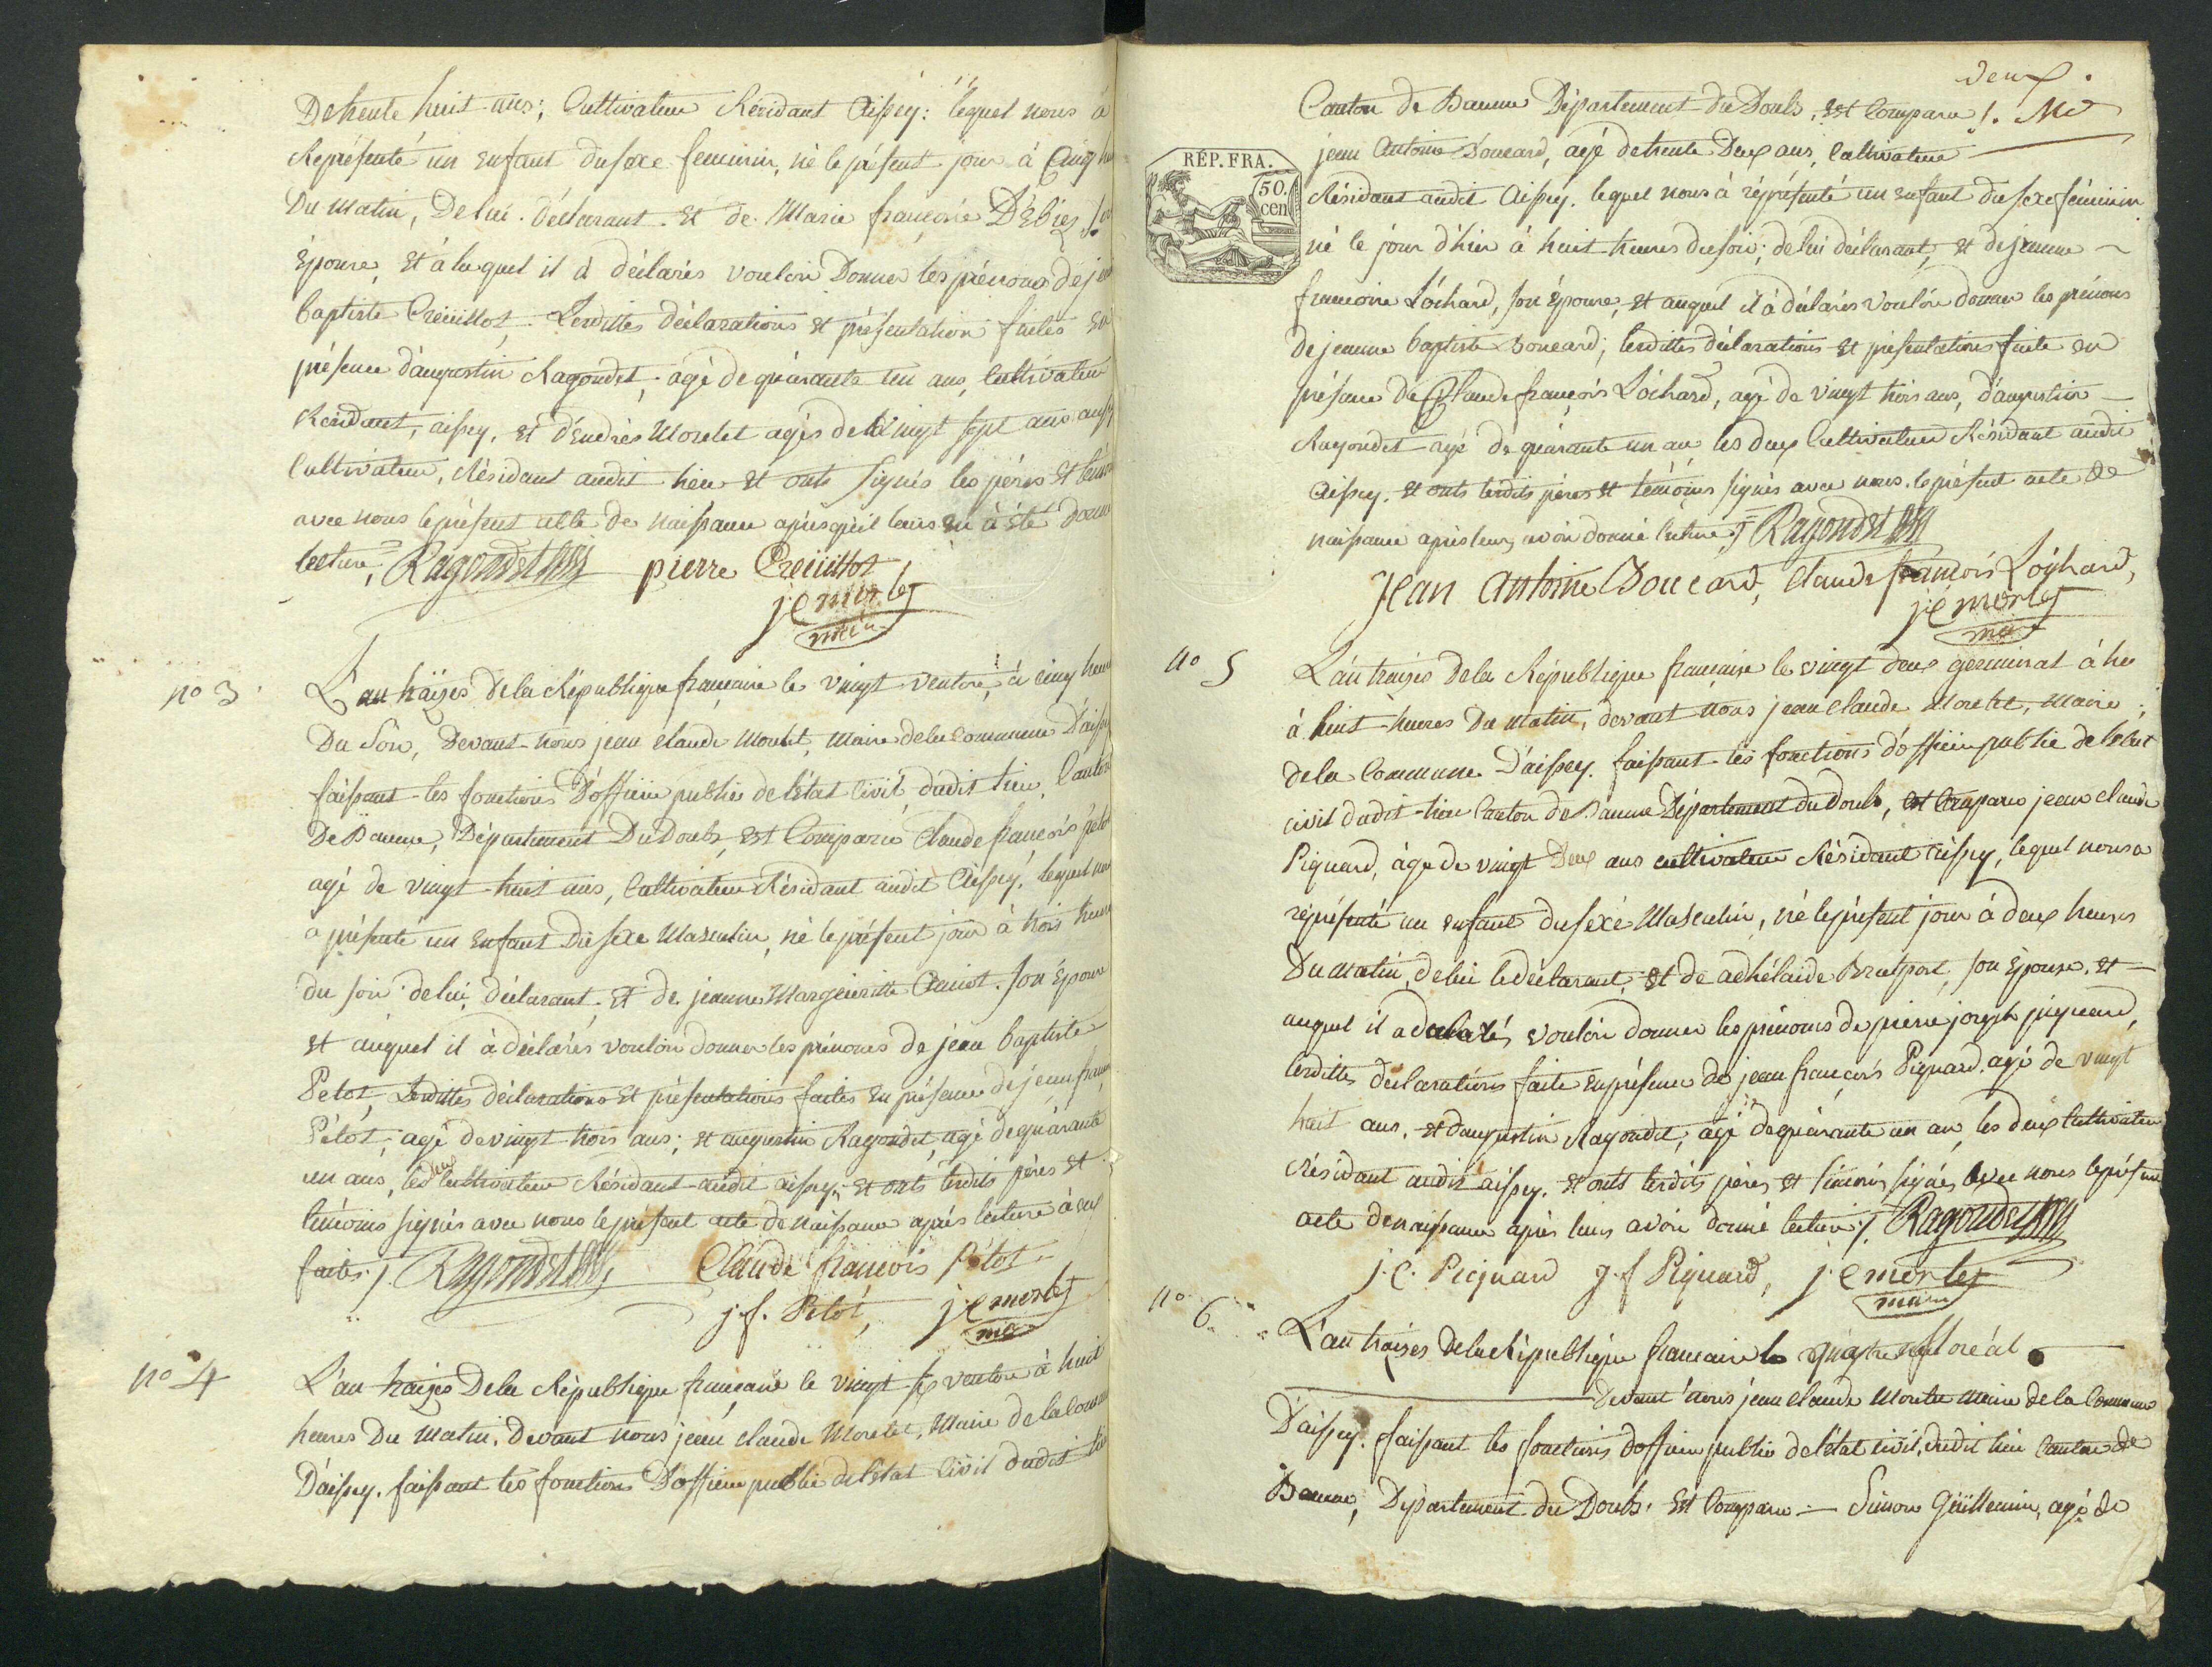 De trente huit ans; Cultivateur Résidant Aissey: lequel nous à
Représenté un enfant du sexe feminin, né le présent jour à Cinq
Du matin, De lui déclarant. Et de Marie françoise
Épouse, Et à laquel il à déclarés vouloir Donner les prénoms de
baptiste Creüillot. Lesdittes déclarations et présentation faites en
présence d'augustin Ragondet, agé de quarante un ans, Cultivateur
Résidant, aissey, et d'endrés Moretet agés de vingt sept ans
Cultivateur, Résidant audit lieu et onts signés les péres et
avec nous le présent acte de naissance aprés qu'il leurs en à été
lecture, Ragondet pierre Creüillot
j C morlet
maire
n° 3
L'an traizes de la République française le vingt ventose, à cinq
Du Soir, Devant nous jean claude Moretet, maire de la Commune
faissant les fonctions D'officier public de l'état Civil dudit lieu,
De Baume, Département Du Doubs, est Comparu Claude françois
agé de vingt-huit ans, Cultivateur Résidant audit Aissey, lequel
a présenté un enfant Du sexe Masculin, né le présent jour à trois
du soir de lui, déclarant. Et de jeanne Margueritte. son Épouse
et auquel il à déclarés vouloir donner les prénoms de jean baptiste
Pelot, Lesdittes déclarations et présentations faites en présence de jean
Pélot, agé de vingt trois ans; et augustin Ragondet, agé de quarante
un ans, les deux Cultivateur Résidant audit aissey; et onts lesdits péres et
témoins signés avec nous le présent acte de naissance aprés lecture à eux
faites ./. Ragondet Claude francois Pélot
j. f. Pelot, j C morlet
n° 4
L'an traizes De la République française le vingt six ventose à huit
heures Du matin. Devant nous jean claude Moretet, Maire de la
D'aissey. faissant les fonctions D'officier public de l'état Civil dudit
deux.
Canton de Baume Département du Doubs, est Comparu
RÉP. FRA.
50. cen
jean Antoine Doucard, agé de trente Deux ans, Cultivateur
Résidant audit Aissey. lequel nous à réprésenté un enfant du sexe féminin
né le jour d'hier à huit heures du soir; de lui déclarant, et de jeanne
francoise Lóchard, son épouse, et auquel il à déclarés vouloir donner les prénoms
de jeanne baptiste Doucard; lesdittes déclarations et présentations faite en
présence de Claude françois Lóchard, agé de vingt trois ans, d'augustin
Ragondet agé de quarante un an les deux Cultivateur Résidant audit
Aissey. et onts lesdits péres et témoins signés avec nous le présent acte de
naissance aprés leurs avoir donné lecture ./. Ragondet
Jean Antoine Doucard, claude francois Lóchard,
j C morlet
n° 5
L'an traizes de la République française le vingt deux germinal
à huit heures Du matin, devant nous jean claude Moretet, Maire
de la Commune D'aissey. faissant les fonctions d'officier public de l'état
civil dudit lieu Canton de Baume Département du Doubs, est Comparu jean claude
Piquard, âge de vingt Deux ans cultivateur Résidant aissey, lequel nous a
réprésenté un enfant du sexe Masculin, né le présent jour à deux heures
Du matin, de lui le déclarant, et de adhélaide, son épouse. et
auquel il a declarés vouloir donner les prénoms de pierre joseph piquard,
lesdittes declarations faite en présence de jean françois Piquard. agé de vingt
huit ans, et d'augustin Ragondet, agé de quarante un an, les deux Cultivateur
Résidant audit aissey. et onts lesdits péres et témoins signés avec nous le présent
acte de naissance aprés leurs avoir donné lecture ./. Ragondet
J. C. Picquard J. f Piquard, j C morlet
maire
n° 6
L'an traizes de la République francaise le quatre floréal
Devant nous jean claude Moretet Maire de la Commune
D'aissey. faissant les fonctions d'officier public de l'état civil, dudit lieu Canton de
Baume, Département du Doubs. Est Comparu — Simon Güillemin, agé de